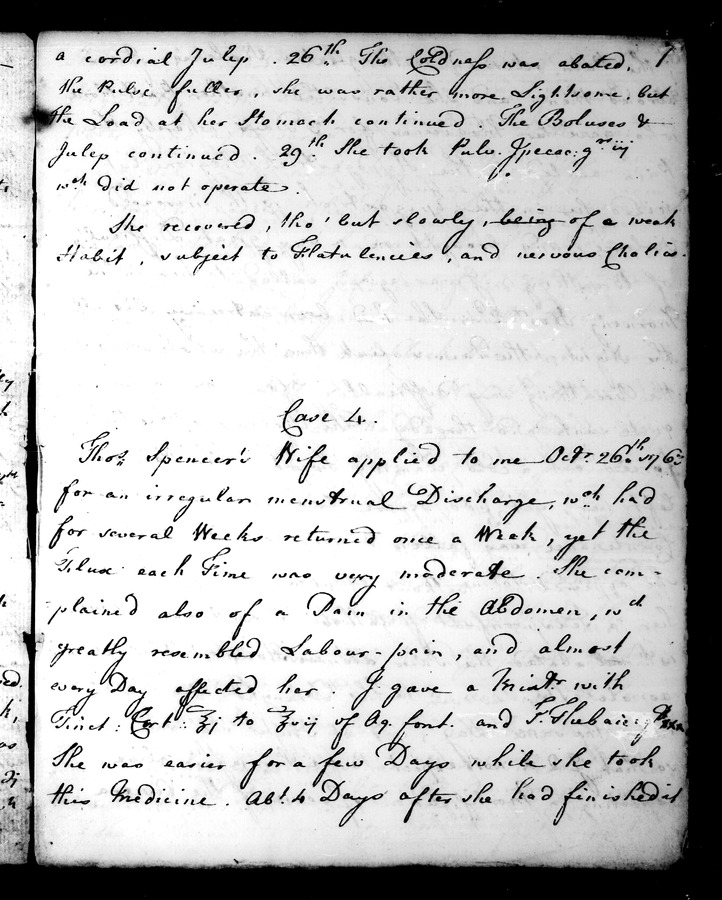 7
a cordial Julep . 26th. The Coldness was abated,
the Pulse fuller, she was rather more Lightsome, but
the Load at her Stomach continued. The Boluses &
Julep continued. 29th. She took Pulv. Ipecac: gr iij
wch did not operate.
She recovered, tho' but slowly, being of a weak
Habit, subject to Flatulencies, and nervous Cholics.
Case 4.
Thos. Spencer's Wife applied to me Octr 26th. 1763
for an irregular menstrual Discharge, wch had
for several Weeks returned once a Week, yet the
Flux each Time was very moderate. She com-
plained also of a Pain in the Abdomen, wch
greatly resembled Labour-pain, and almost
every Day affected her. I gave a Mistr with
Tinct: Cort: ℥j to ℥vij of Aq. font. and T. Thebaic g
She was easier for a few Days while she took
this Medicine. Abt. 4 Days after she had finished it